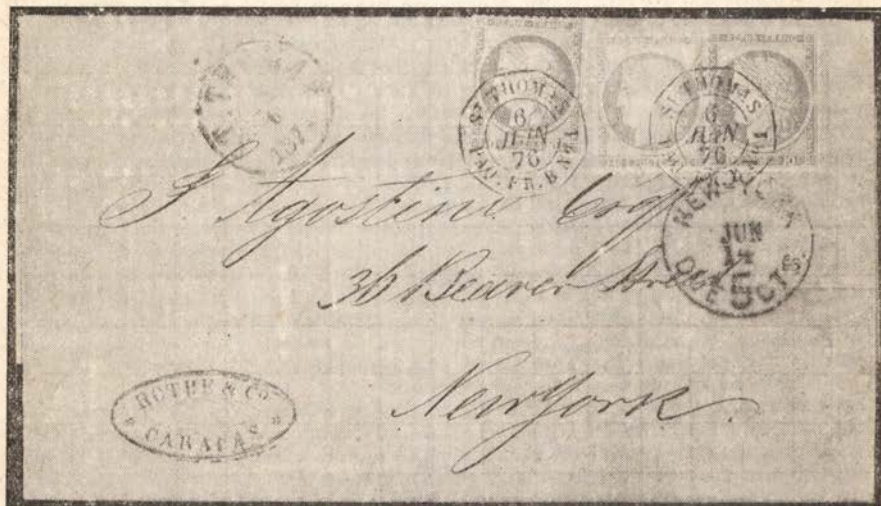 ST THOMAS
6
187
ST THOMAS
6
JUIN
76
PAQ. FR. B Nº 1
ST THOMAS
6
JUIN
76
NEW YORK
JUN
14
DUE 5 CTS.
Agostini Esqr
36 Beaver Street
New York
ROTHE & Co.
* CARACAS *